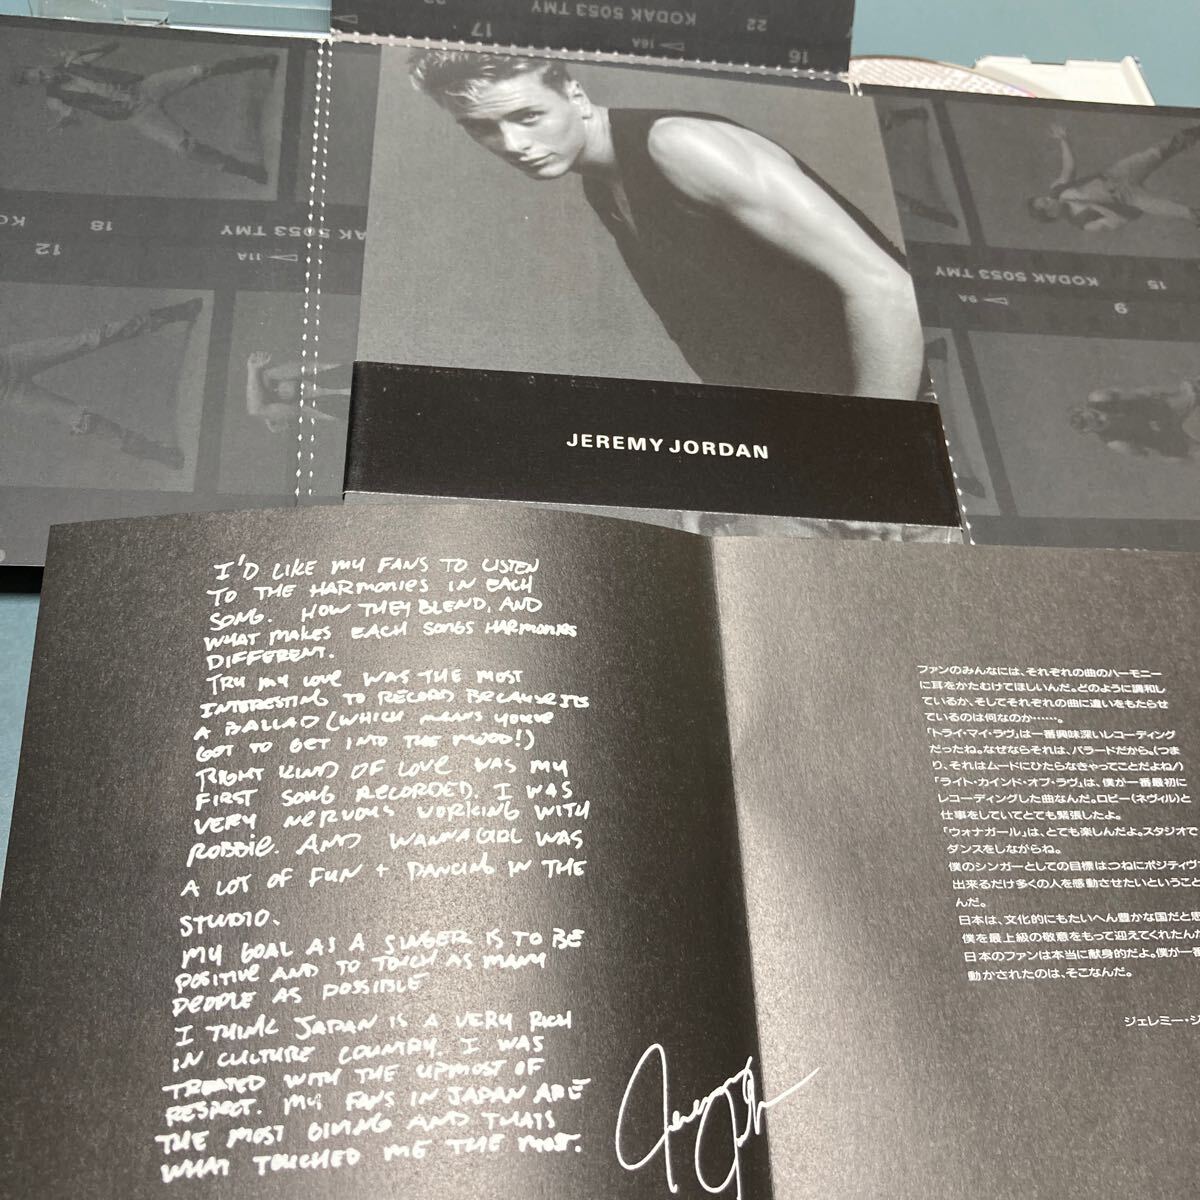 KODAK 5053 TMY
22
17
16A
16
18
KODAK 5053 TMY
12
11A
KODAK 5053 TMY
15
9A
9
JEREMY JORDAN
I'D LIKE MY FANS TO LISTEN
TO THE HARMONIES IN EACH
SONG. HOW THEY BLEND, AND
WHAT MAKES EACH SONGS HARMONIES
DIFFERENT.
TRY MY LOVE WAS THE MOST
INTERESTING TO RECORD BECAUSE ITS
A BALLAD (WHICH MEANS YOU'VE
GOT TO GET INTO THE MOOD!)
RIGHT KIND OF LOVE WAS MY
FIRST SONG RECORDED. I WAS
VERY NERVOUS WORKING WITH
ROBBIE. AND WANNAGIRL WAS
A LOT OF FUN + DANCING IN THE
STUDIO.
MY GOAL AS A SINGER IS TO BE
POSITIVE AND TO TOUCH AS MANY
PEOPLE AS POSSIBLE
I THINK JAPAN IS A VERY RICH
IN CULTURE COUNTRY. I WAS
TREATED WITH THE UPMOST OF
RESPECT. MY FANS IN JAPAN ARE
THE MOST GIVING AND THATS
WHAT TOUCHED ME THE MOST.
ファンのみんなには、それぞれの曲のハーモニー
に耳をかたむけてほしいんだ。どのように調和し
ているか、そしてそれぞれの曲に違いをもたらせ
ているのは何なのか……。
「トライ・マイ・ラヴ」は一番興味深いレコーディング
だったね。なぜならそれは、バラードだから。(つま
り、それはムードにひたらなきゃってことだよね!)
「ライト・カインド・オブ・ラヴ」は、僕が一番最初に
レコーディングした曲なんだ。ロビー(ネヴィル)と
仕事をしていてとても緊張したよ。
「ウォナガール」は、とても楽しんだよ。スタジオで
ダンスをしながらね。
僕のシンガーとしての目標はつねにポジティヴ
出来るだけ多くの人を感動させたいということ
んだ。
日本は、文化的にもたいへん豊かな国だと思
僕を最上級の敬意をもって迎えてくれたんだ
日本のファンは本当に献身的だよ。僕が一番
動かされたのは、そこなんだ。
ジェレミー・ジ